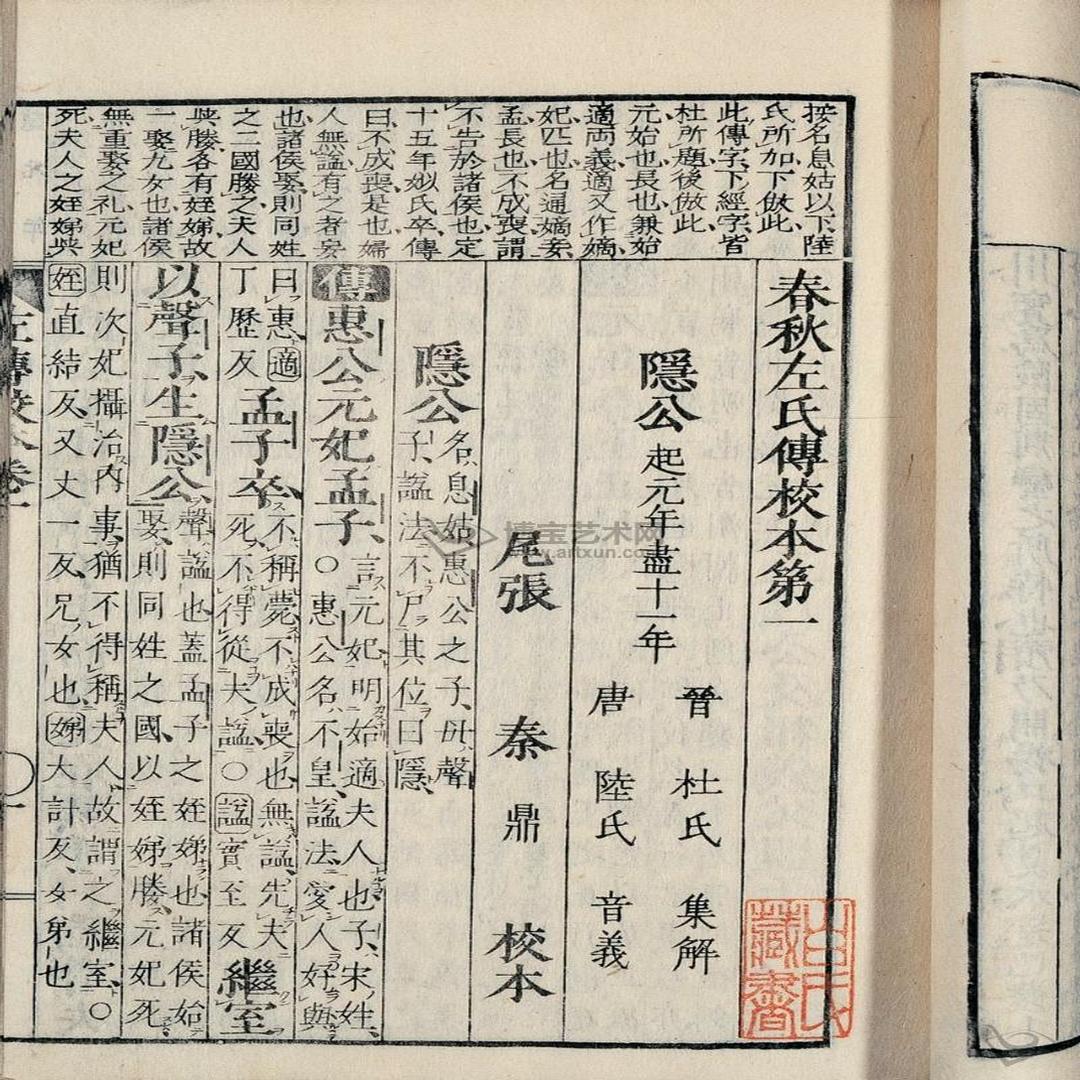 按名息姑以下陸
氏所加下做此
此傳字下經字皆
杜所題後做此
元始也長也兼始
適兩義適又作嫡
妃匹也名通嫡妾
孟長也不成喪謂
不告於諸侯也定
十五年姒氏卒傳
曰不成喪是也婦
人無謚有之者
也諸侯娶則同姓
之二國媵之夫人
與媵各有姪娣故
一娶九女也諸侯
無重娶之礼元妃
死夫人之姪娣與
春秋左氏傳校本第一
隱公 起元年盡十一年
晉 杜氏 集解
唐 陸氏 音義
尾張 秦 鼎 校本
隱公 名息姑惠公之子母聲
子謚法不尸其位曰隱
傳惠公元妃孟子 言元妃明始適夫人也子宋姓
○惠公名不皇謚法愛人好與
曰惠適
丁歷反
孟子卒 不稱薨不成喪也無謚先夫
死不得從夫謚○謚實至反
繼室
以聲子生隱公 聲謚也蓋孟子之姪娣也諸侯始
娶則同姓之國以姪娣媵元妃死
則次妃攝治內事猶不得稱夫人故謂之繼室○
姪直結反又丈一反兄女也娣大計反女弟也
左傳校本卷一
一
山田氏
藏書
博宝艺术网
www.artxun.com